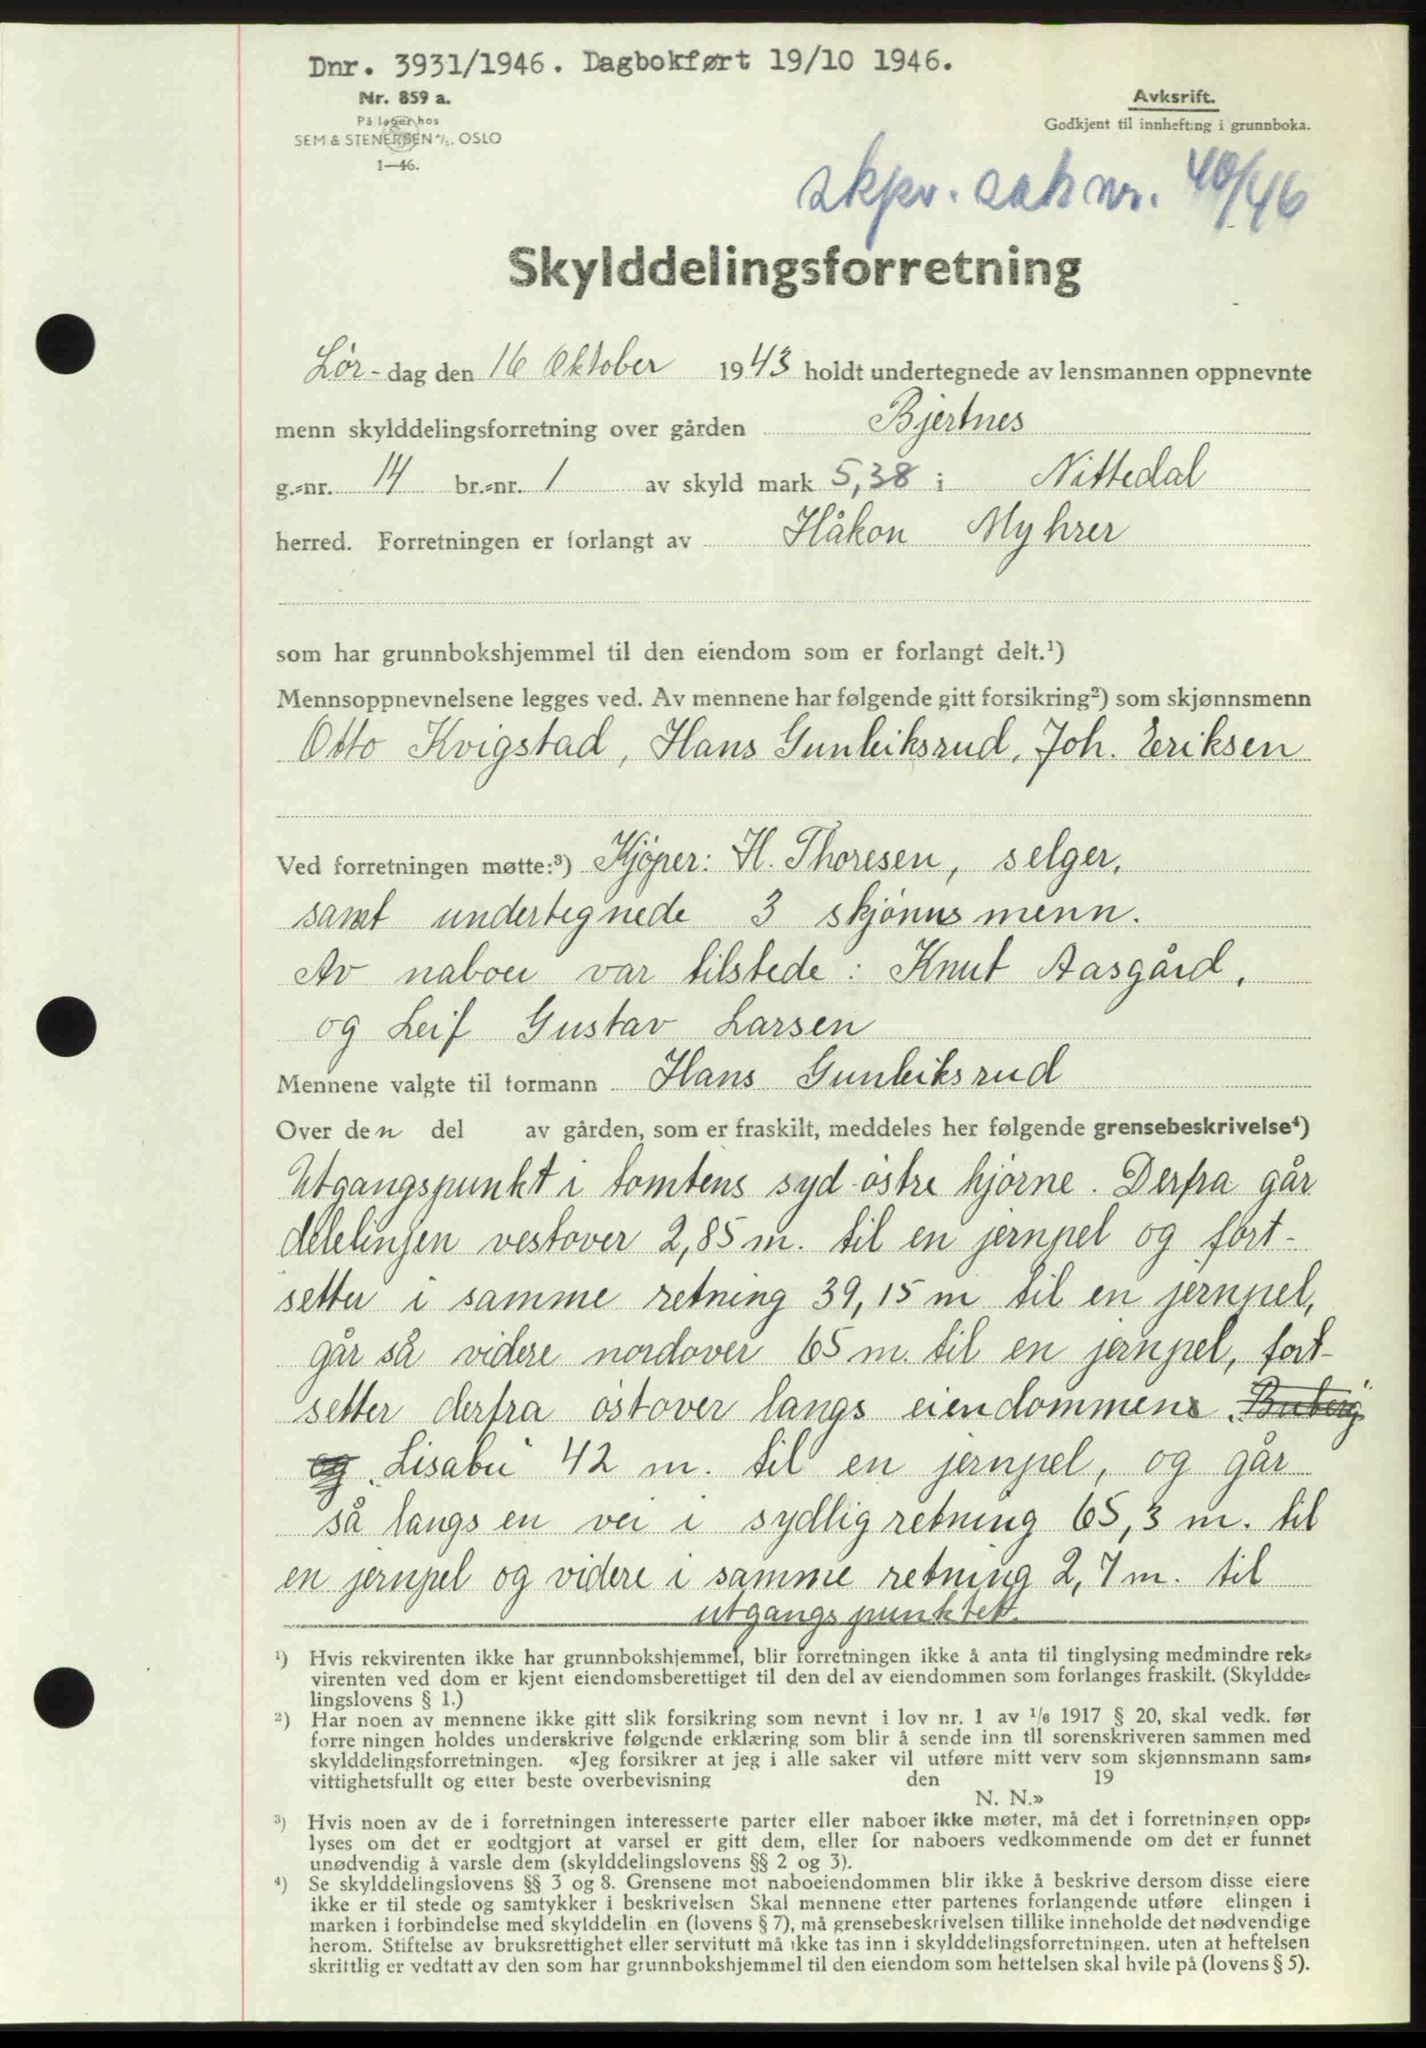 Dnr. 3931/1946. Dagbokført 19/10 1946.
Nr. 859 a.
På lager hos
SEM & STENERSEN A/S. OSLO
1—46.
Avksrift.
Godkjent til innhefting i grunnboka.
skpv. sak nr. 40/46
Skylddelingsforretning
Lør-dag den 16 Oktober 1943 holdt undertegnede av lensmannen oppnevnte
menn skylddelingsforretning over gården Bjertnes
g.=nr. 14 br.=nr. 1 av skyld mark 5,38 i Nittedal
herred. Forretningen er forlangt av Håkon Myhrer
som har grunnbokshjemmel til den eiendom som er forlangt delt.¹)
Mennsoppnevnelsene legges ved. Av mennene har følgende gitt forsikring²) som skjønnsmenn
Otto Kvigstad, Hans Gunleiksrud, Joh. Eriksen
Ved forretningen møtte:³) Kjöper: H. Thoresen, selger,
samt undertegnede 3 skjönns menn.
Av naboer var tilstede: Knut Aasgård,
og Leif Gustav Larsen
Mennene valgte til formann Hans Gunleiksrud
Over den del av gården, som er fraskilt, meddeles her følgende grensebeskrivelse⁴)
Utgangspunkt i tomtens syd-östre hjörne. Derfra går
delelinjen vestover 2,85 m. til en jernpel og fort-
setter i samme retning 39,15 m til en jernpel,
går så videre nordover 65 m. til en jernpel, fort-
setter derfra östover langs eiendommene "Buberg"
og "Lisabu" 42 m. til en jernpel, og går
så langs en vei i sydlig retning 65,3 m. til
en jernpel og videre i samme retning 2,7 m. til
utgangspunktet.
¹) Hvis rekvirenten ikke har grunnbokshjemmel, blir forretningen ikke å anta til tinglysing medmindre rek=
virenten ved dom er kjent eiendomsberettiget til den del av eiendommen som forlanges fraskilt. (Skyldde=
lingslovens § 1.)
²) Har noen av mennene ikke gitt slik forsikring som nevnt i lov nr. 1 av 1/6 1917 § 20, skal vedk. før
forre ningen holdes underskrive følgende erklæring som blir å sende inn til sorenskriveren sammen med
skylddelingsforretningen. «Jeg forsikrer at jeg i alle saker vil utføre mitt verv som skjønnsmann sam=
vittighetsfullt og etter beste overbevisning den 19
N. N.»
³) Hvis noen av de i forretningen interesserte parter eller naboer ikke møter, må det i forretningen opp=
lyses om det er godtgjort at varsel er gitt dem, eller for naboers vedkommende om det er funnet
unødvendig å varsle dem (skylddelingslovens §§ 2 og 3).
⁴) Se skylddelingslovens §§ 3 og 8. Grensene mot naboeiendommen blir ikke å beskrive dersom disse eiere
ikke er til stede og samtykker i beskrivelsen Skal mennene etter partenes forlangende utføre elingen i
marken i forbindelse med skylddelin en (lovens § 7), må grensebeskrivelsen tillike inneholde det nødvendige
herom. Stiftelse av bruksrettighet eller servitutt må ikke tas inn i skylddelingsforretningen. uten at heftelsen
skriftlig er vedtatt av den som har grunnbokshjemmel til den eiendom som heftelsen skal hvile på (lovens § 5).